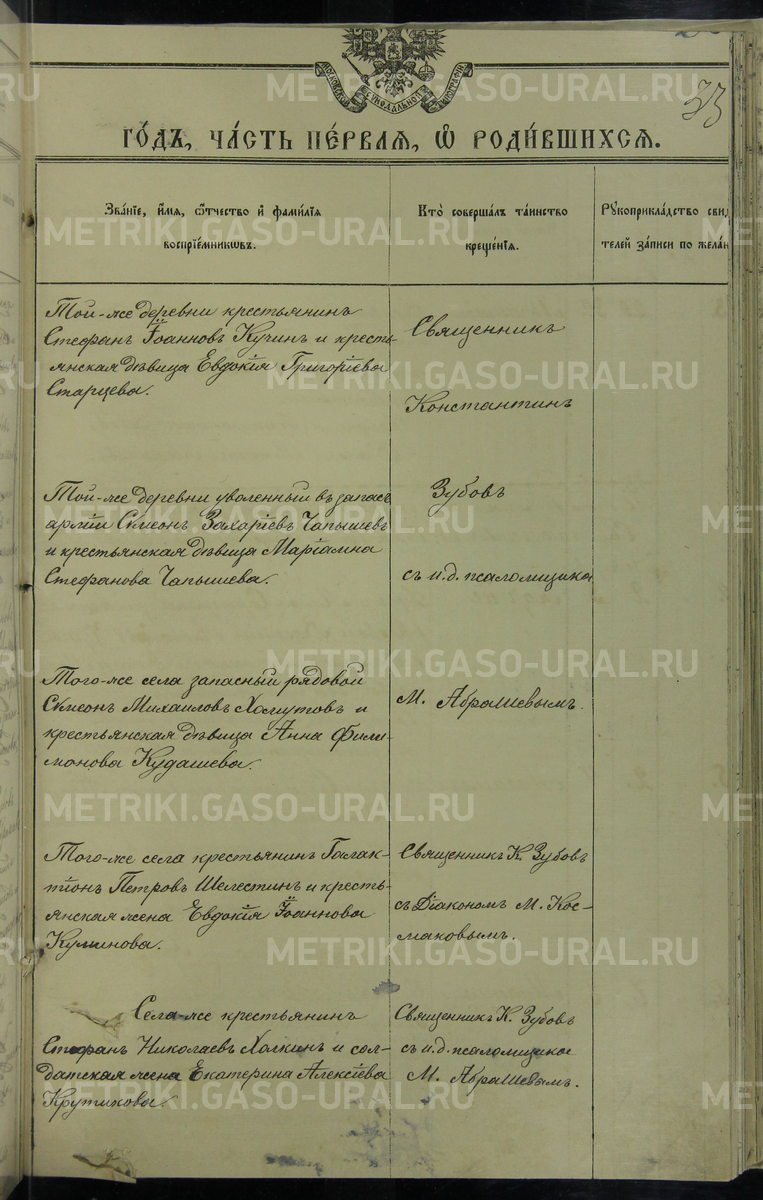 МОСКОВСКОЙ СѴНОДАЛЬНОЙ ТИПОГРАФІИ
33
ГО́ДЪ, ЧА́СТЬ ПЕ́РВАѦ, Ѡ҆ РОДИ́ВШИХСѦ.
Зва́нїе, и҆́мѧ, ѻ҆́тчество и҆ фами́лїѧ
воспрїе́мникѡвъ.
Кто̀ соверша́лъ та́инство
креще́нїѧ.
Рꙋкоприкла́дство свид
телей за́писи по жела́н
Той-же деревни крестьянинъ
Стефанъ Іоанновъ Кучинъ и кресть-
янская дѣвица Евдокія Григоріева
Старцева.
Священникъ
Константинъ
Той-же деревни уволенный въ запасъ
арміи Сѵмеонъ Захаріевъ Чапышевъ
и крестьянская дѣвица Маріамна
Стефанова Чапышева.
Зубовъ
съ и.д. псаломщика
Того-же села запасный рядовой
Сѵмеонъ Михаиловъ Хомутовъ и
крестьянская дѣвица Анна Фили-
монова Кудашева.
М. Абрашевымъ.
Того-же села крестьянинъ Галак-
тіонъ Петровъ Шелестинъ и кресть-
янская жена Евдокія Іоаннова
Куминова.
Священникъ К. Зубовъ
съ Діакономъ М. Кос-
маковымъ.
Села-же крестьянинъ
Стефанъ Николаевъ Халкинъ и сол-
датская жена Екатерина Алексіева
Крутикова.
Священникъ К. Зубовъ
съ и.д. псаломщика
М. Абрашевымъ.
METRIKI.GASO-URAL.RU